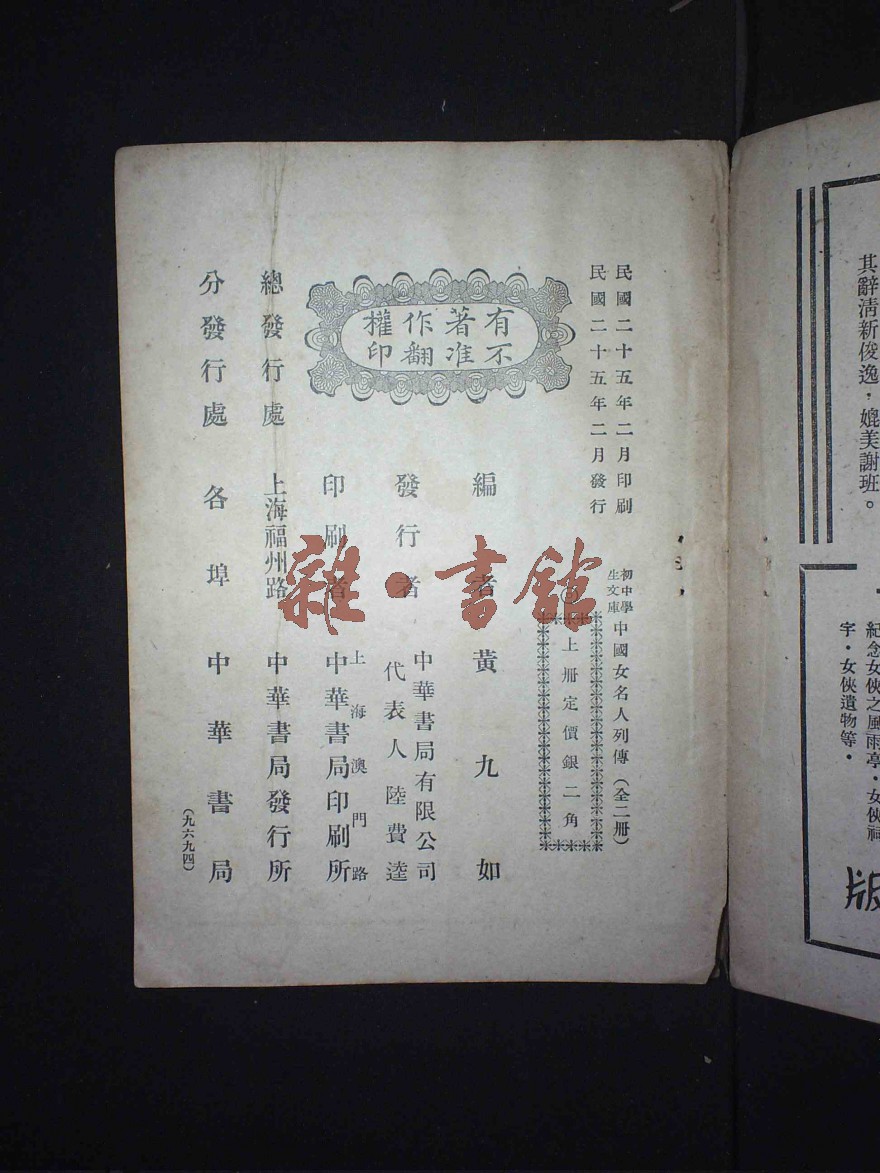 其辭清新俊逸，媲美謝班。
紀念女俠之風雨亭・女俠祠
宇・女俠遺物等・
版
民國二十五年二月印刷
民國二十五年二月發行
初中學
生文庫
中國女名人列傳（全二冊）
上冊定價銀二角
有不
著准
作翻
權印
編者 黃九如
發行者
中華書局有限公司
代表人 陸費逵
印刷者
上海澳門路
中華書局印刷所
總發行處 上海福州路 中華書局發行所
分發行處 各埠 中華書局
（九六九四）
雜·書館